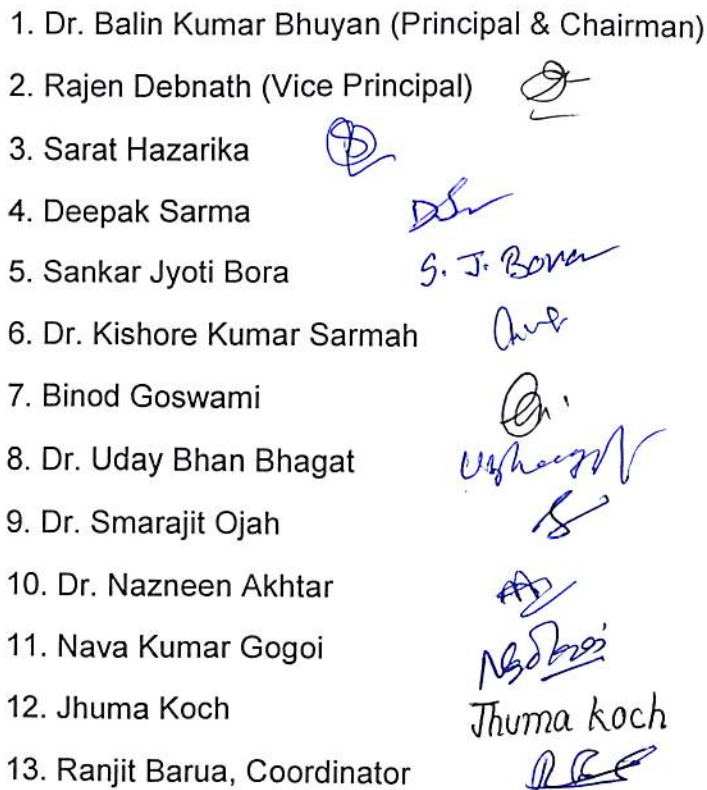 1. Dr. Balin Kumar Bhuyan (Principal & Chairman)
2. Rajen Debnath (Vice Principal)
3. Sarat Hazarika
4. Deepak Sarma
5. Sankar Jyoti Bora S. J. Bora
6. Dr. Kishore Kumar Sarmah
7. Binod Goswami
8. Dr. Uday Bhan Bhagat
9. Dr. Smarajit Ojah
10. Dr. Nazneen Akhtar
11. Nava Kumar Gogoi
12. Jhuma Koch Jhuma koch
13. Ranjit Barua, Coordinator